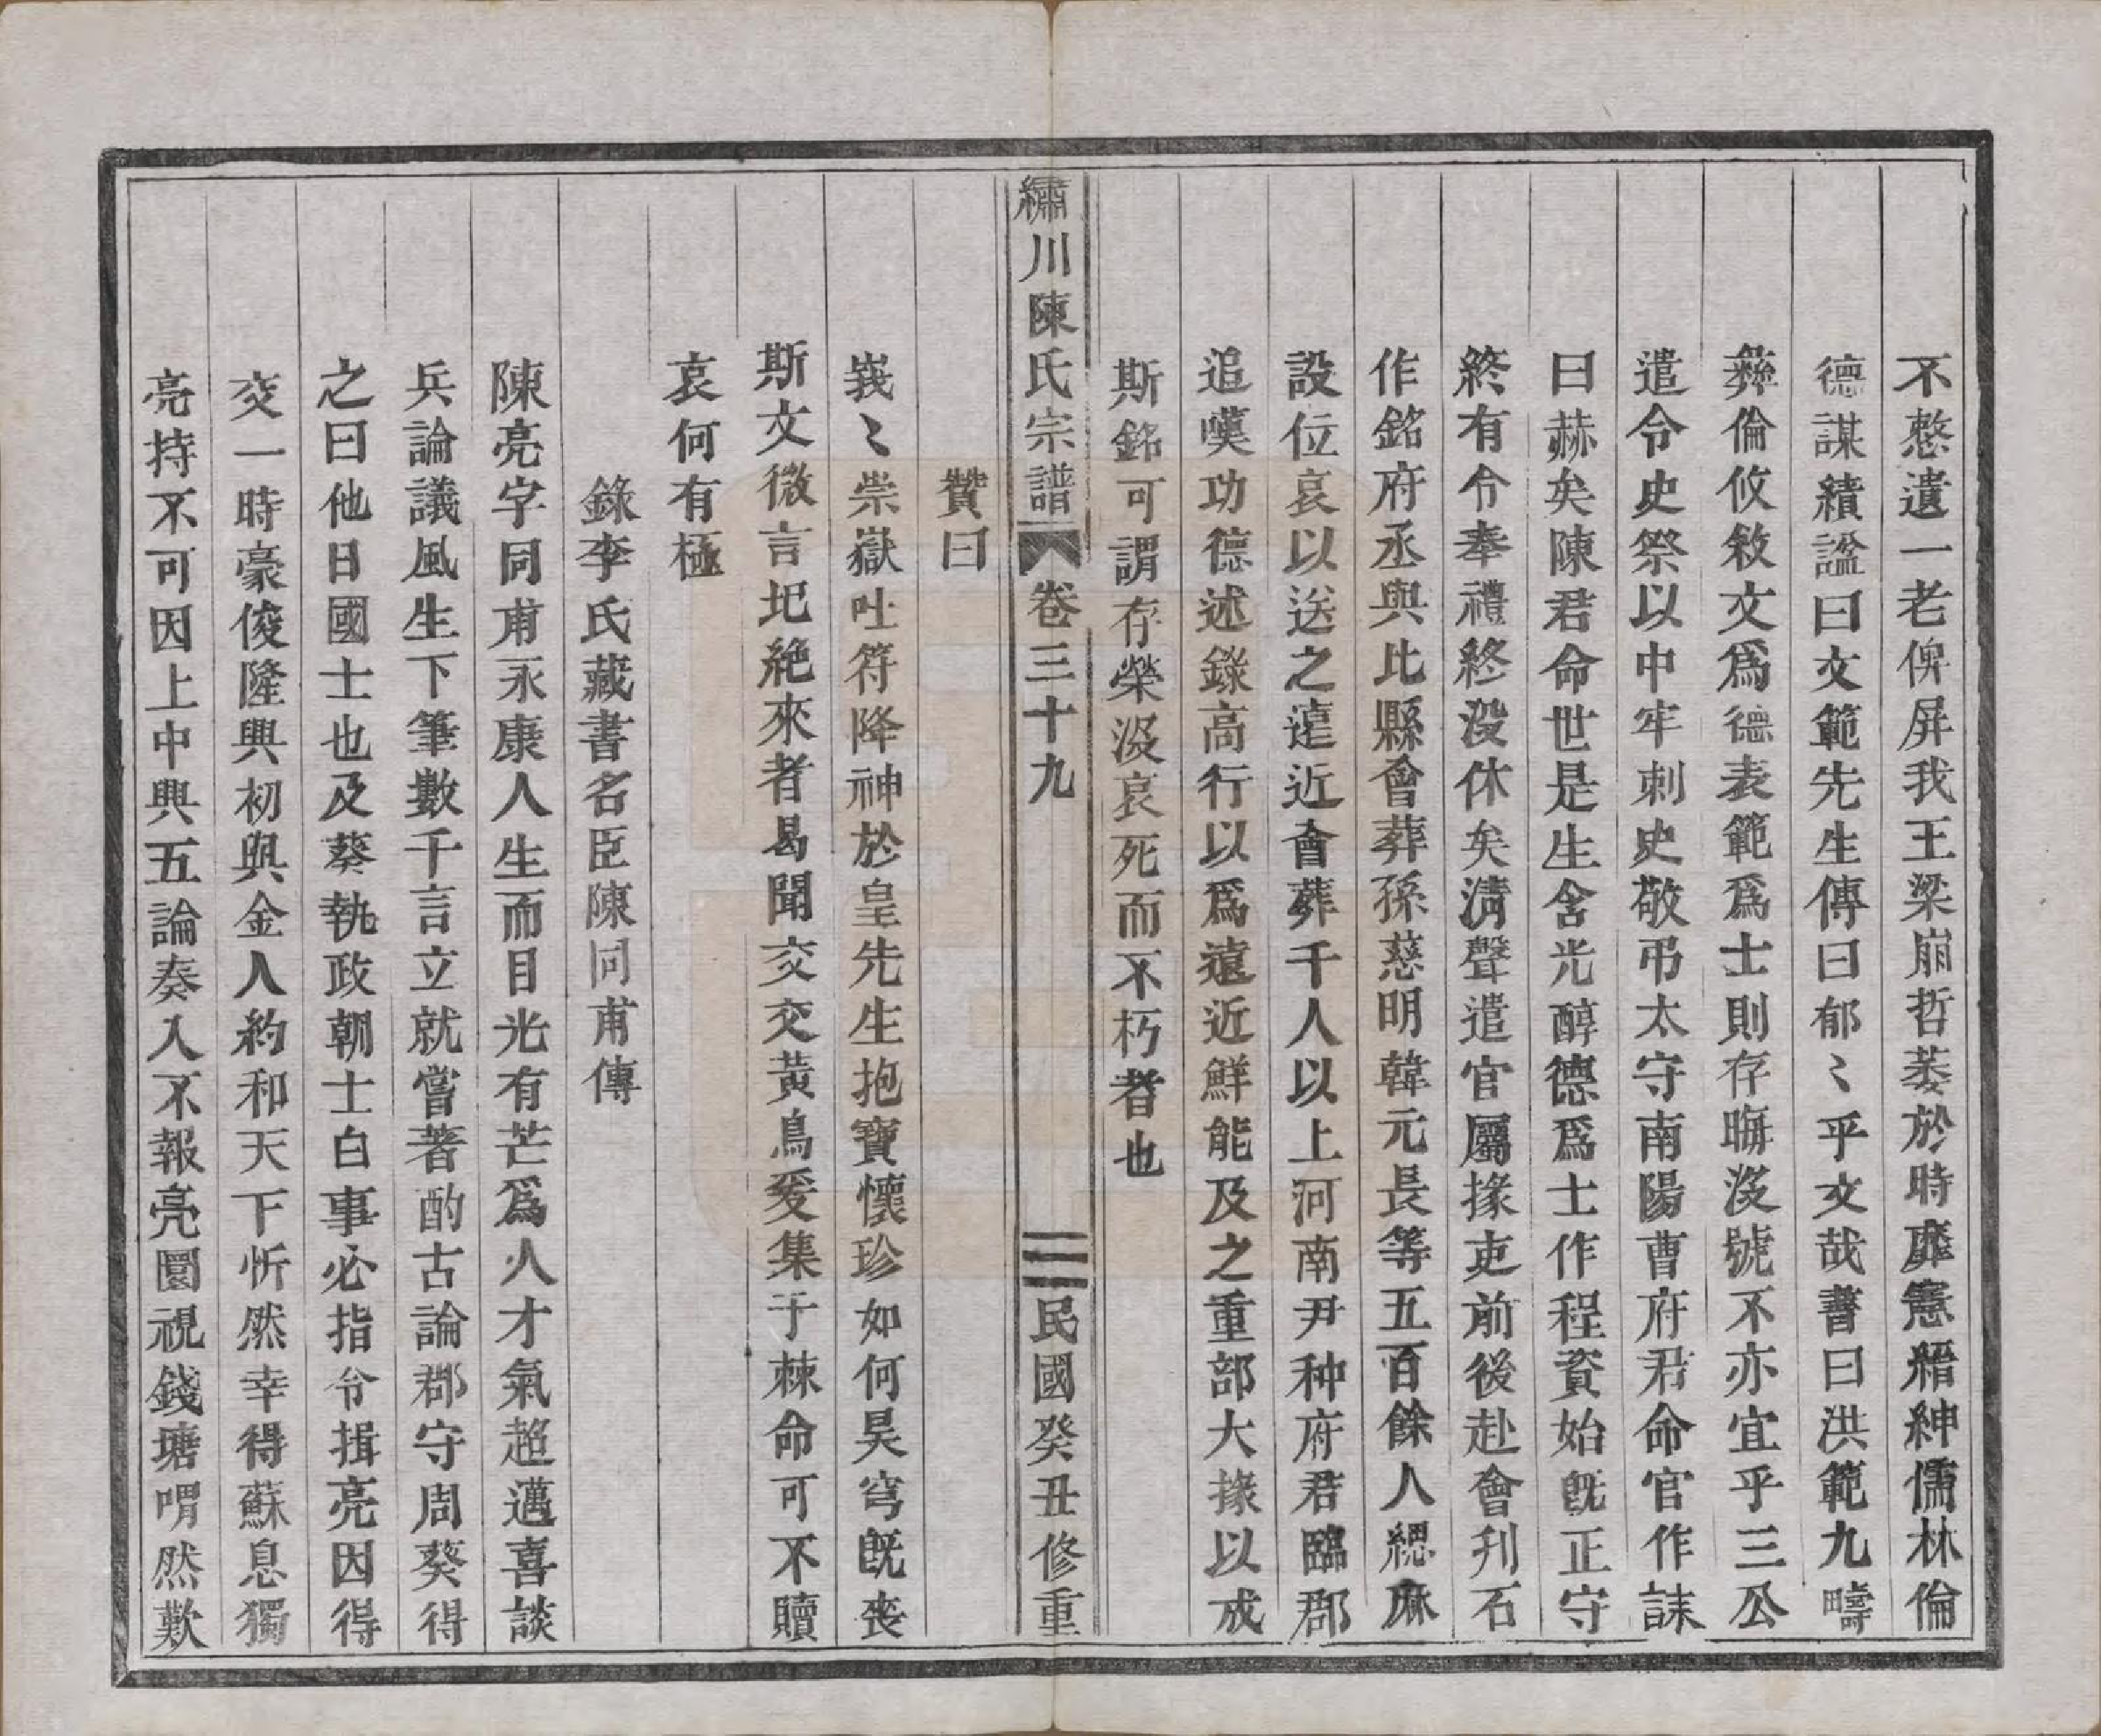 不憖遺一老俾屏我王梁崩哲萎於時靡憲縉紳儒林倫
德謀績謚曰文範先生傳曰郁〻乎文哉書曰洪範九疇
彝倫攸敘文爲德表範爲士則存晦沒號不亦宜乎三公
遣令史祭以中牢刺史敬弔太守南陽曹府君命官作誄
曰赫矣陳君命世是生含光醇德爲士作程資始旣正守
終有令奉禮終沒休矣淸聲遣官屬掾吏前後赴會刋石
作銘府丞與比縣會葬孫慈明韓元長等五百餘人緦麻
設位哀以送之遠近會葬千人以上河南尹种府君臨郡
追嘆功德述錄高行以爲遠近鮮能及之重部大掾以成
斯銘可謂存榮沒哀死而不朽者也
繡川陳氏宗譜 卷三十九 二 民國癸丑修重
贊曰
峩〻崇嶽吐符降神於皇先生抱寶懷珍如何昊穹旣喪
斯文微言圯絶來者曷聞交交黃鳥爰集于棘命可不贖
哀何有極
錄李氏藏書名臣陳同甫傳
陳亮字同甫永康人生而目光有芒爲人才氣超邁喜談
兵論議風生下筆數千言立就嘗著酌古論郡守周葵得
之曰他日國士也及葵執政朝士白事必指令揖亮因得
交一時豪俊隆興初與金人約和天下忻然幸得蘇息獨
亮持不可因上中興五論奏入不報亮圜視錢塘喟然歎